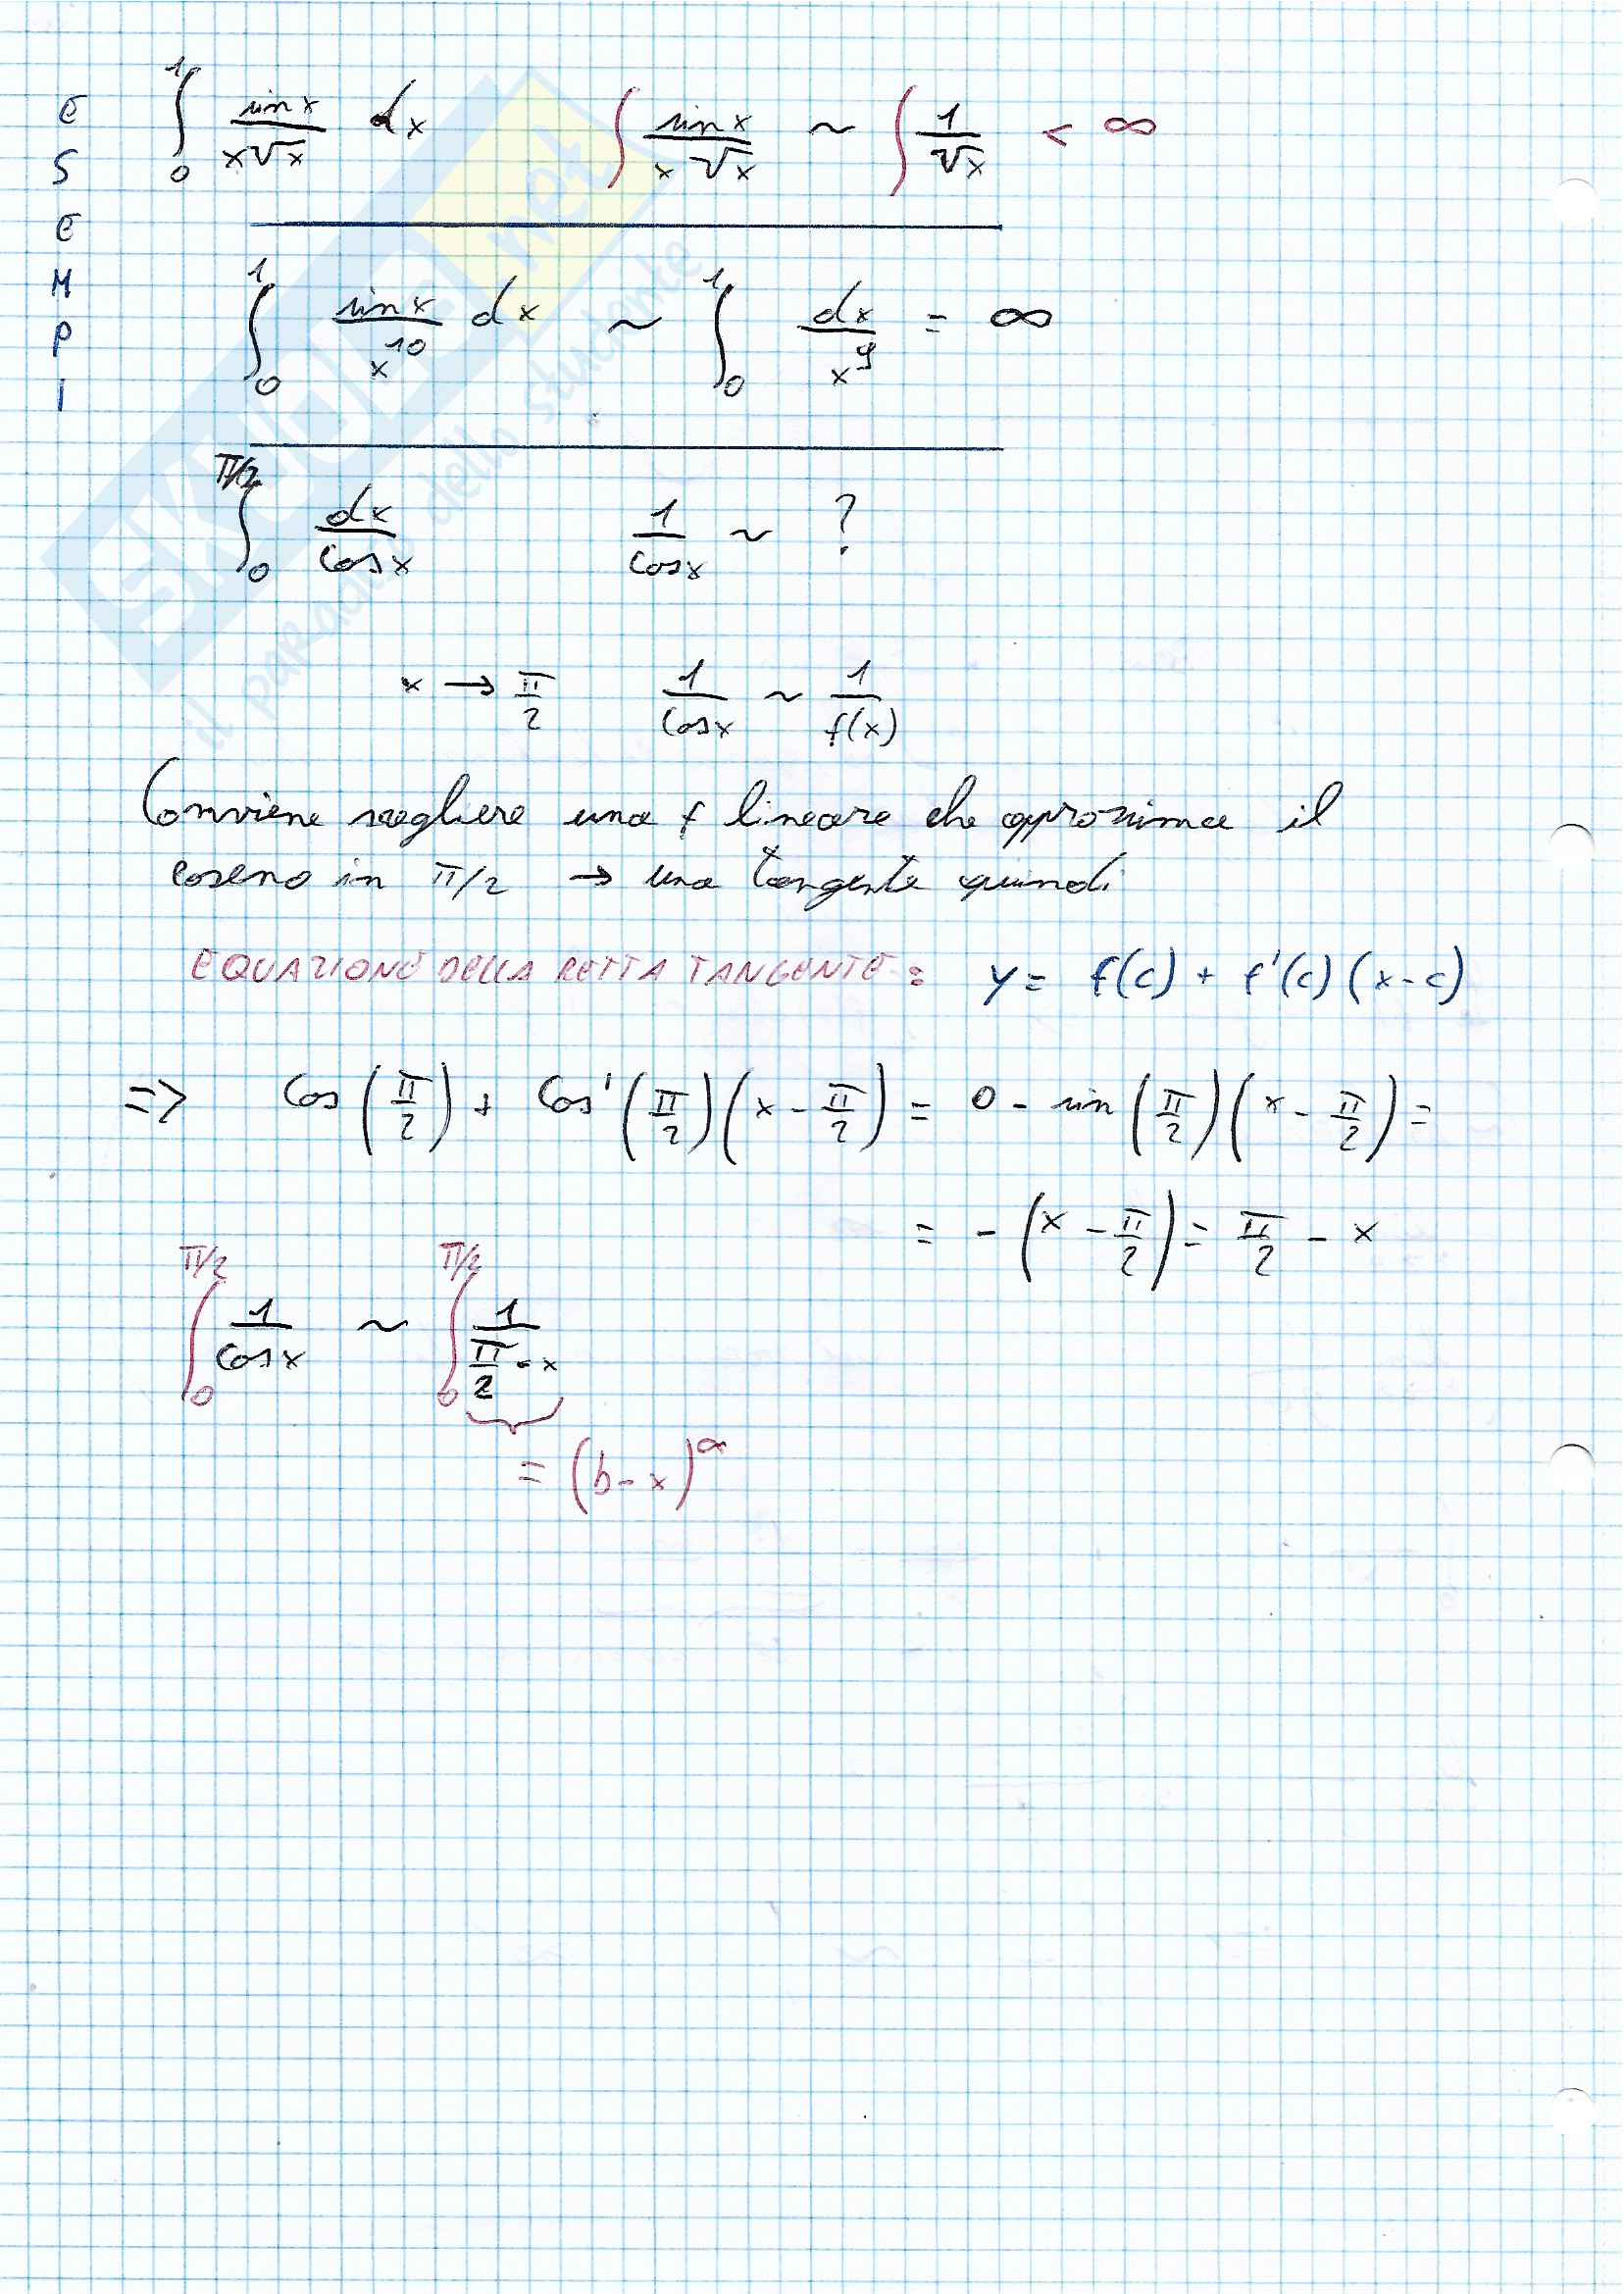 ESEMPI
∫₀¹ sin x / (x√x) dx    ∫ sin x / (x√x) ~ ∫ 1/√x < ∞
∫₀¹ sin x / x¹⁰ dx ~ ∫₀¹ dx / x⁹ = ∞
∫₀^{π/2} dx / cos x    1 / cos x ~ ?
x → π/2    1 / cos x ~ 1 / f(x)
Conviene scegliere una f lineare che approssima il
coseno in π/2 → una tangente quindi
EQUAZIONE DELLA RETTA TANGENTE: y = f(c) + f'(c)(x-c)
=> cos(π/2) + cos'(π/2)(x - π/2) = 0 - sin(π/2)(x - π/2) =
= -(x - π/2) = π/2 - x
∫₀^{π/2} 1 / cos x ~ ∫₀^{π/2} 1 / (π/2 - x)
= (b - x)^α
skuola.net
il paradiso dello studente